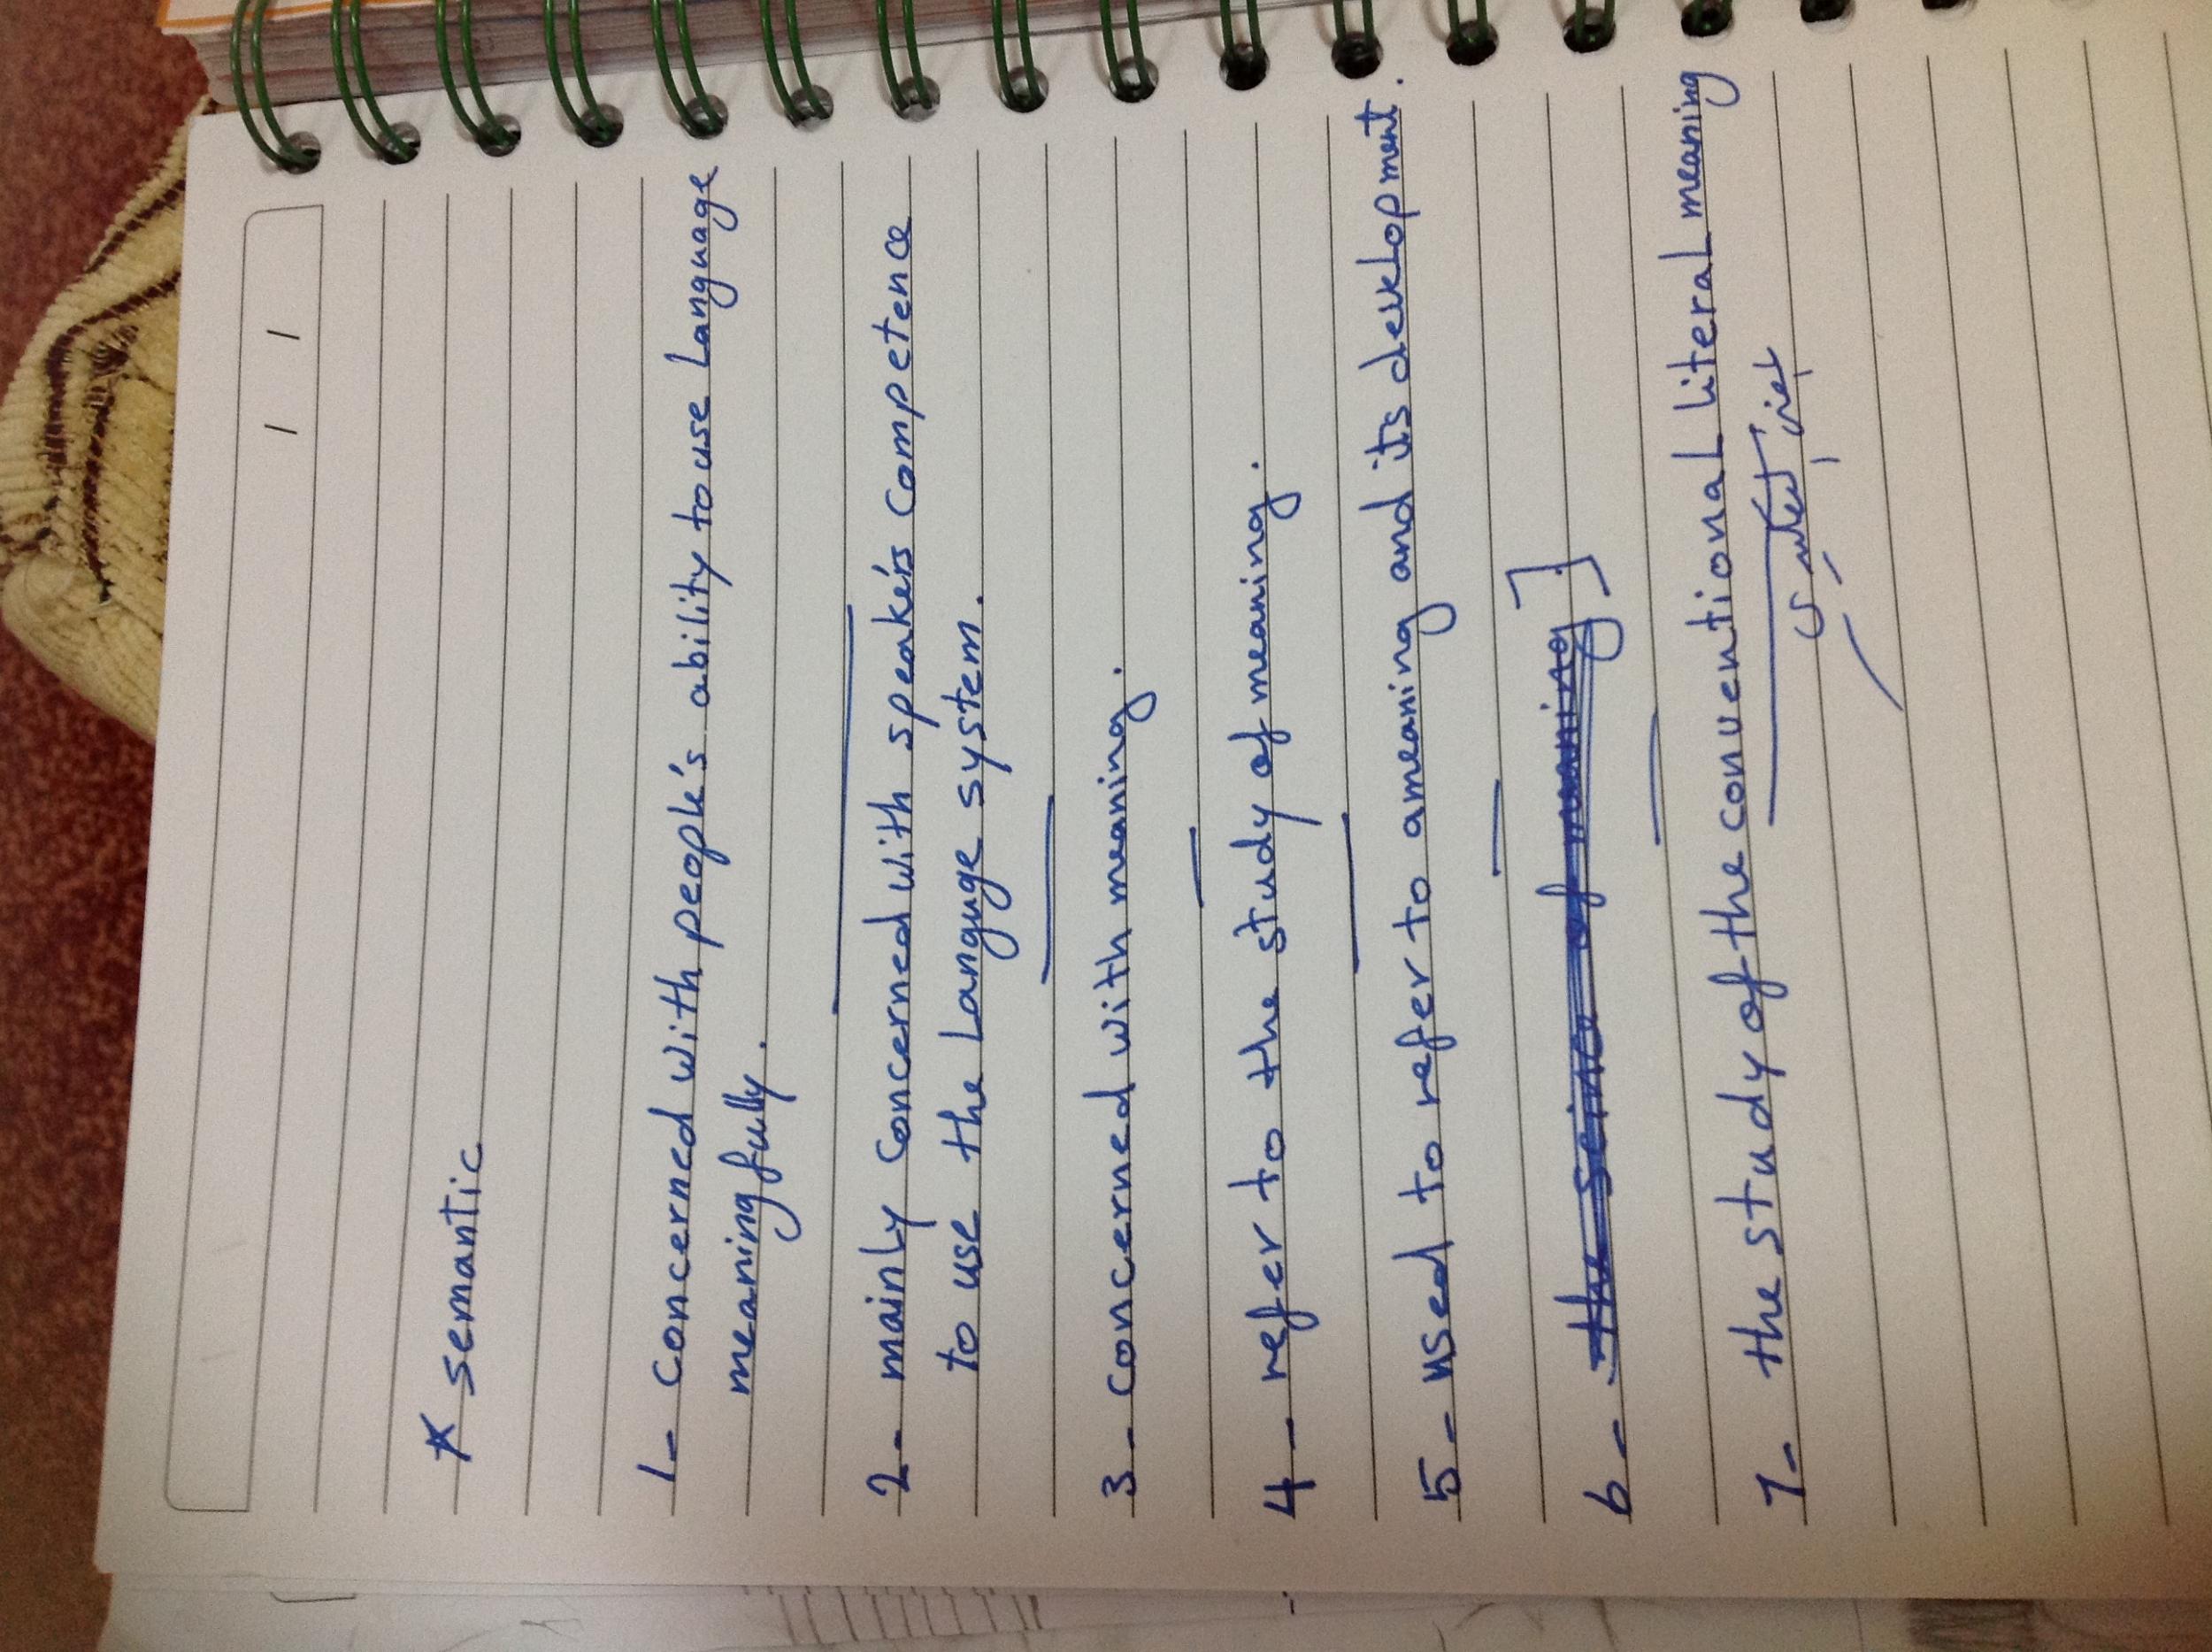 / /
* semantic
1- concerned with people's ability to use Language
meaningfully.
2- mainly concerned with speaker's competence
to use the Languge system.
3- concerned with meaning.
4- refer to the study of meaning.
5- used to refer to ameaning and its development.
6- the scince of meaning]
7- the study of the conventional literal meaning